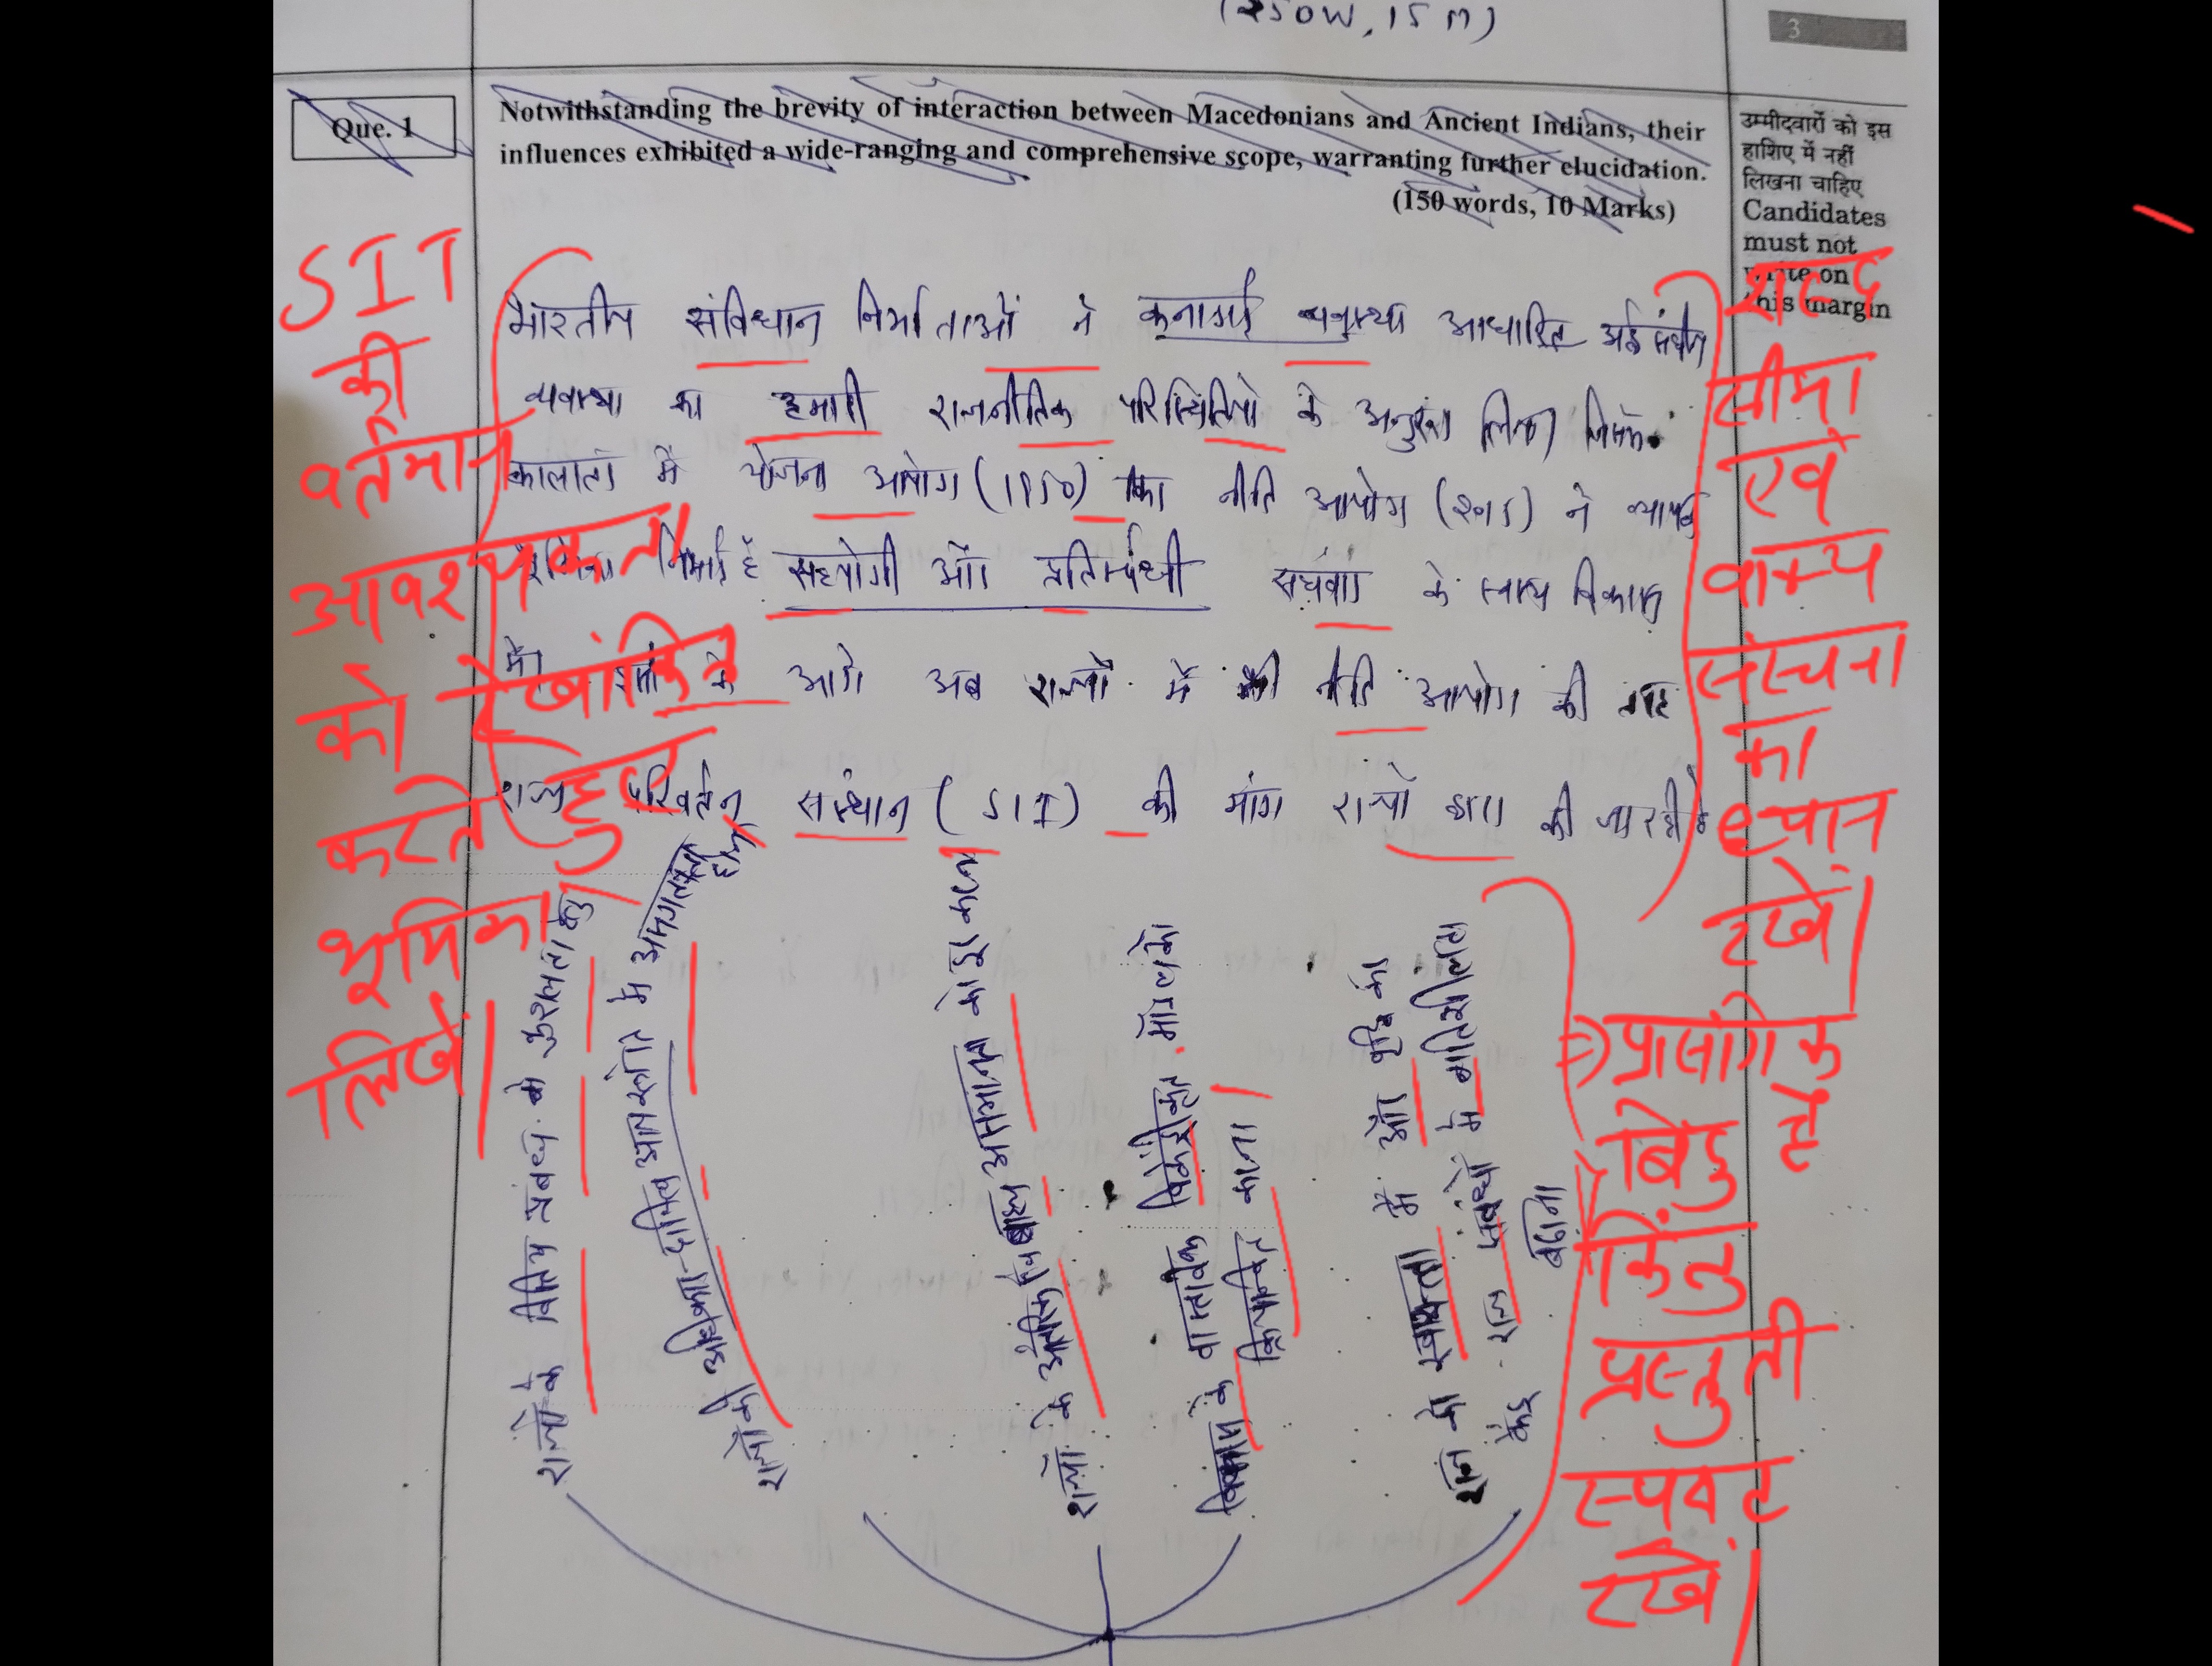 (250W, 15M)
3
Que. 1
Notwithstanding the brevity of interaction between Macedonians and Ancient Indians, their
influences exhibited a wide-ranging and comprehensive scope, warranting further elucidation.
(150 words, 10 Marks)
उम्मीदवारों को इस
हाशिए में नहीं
लिखना चाहिए
Candidates
must not
write on
this margin
भारतीय संविधान निर्माताओं ने कनाडाई व्यवस्था आधारित अर्द्धसंघीय
व्यवस्था का हमारी राजनीतिक परिस्थितियों के अनुरूप लिया
कालांतर में योजना आयोग (1950) का नीति आयोग (2015) ने व्यापक
भूमिका निभाई है सहयोगी और प्रतिस्पर्धी संघवाद के साथ विकास
में। इसी के आगे अब राज्यों में भी नीति आयोग की तरह
राज्य परिवर्तन संस्थान (SIT) की मांग राज्यों द्वारा की जा रही है
राज्यों के वित्तीय प्रबंधन के कुशलता हेतु
राज्यों की अधिकार-दायित्व आय स्रोत में असंगतता
राज्यों के आंतरिक एवं बाह्य असमानता को दूर करना
विकास के वास्तविक विकेंद्रीकृत मॉडल को
क्रियान्वित करना
राज्य की स्वायत्तता में और वृद्धि का
केंद्र राज्य संबंधों में गतिशीलता
बढ़ाना
SIT
की
वर्तमान
आवश्यकता
को रेखांकित
करते हुए
भूमिका
लिखें।
शब्द
सीमा
एवं
वाक्य
संरचना
का
ध्यान
रखें।
⇒ प्रासंगिक
बिंदु हैं
किंतु
प्रस्तुती
स्पष्ट
रखें।